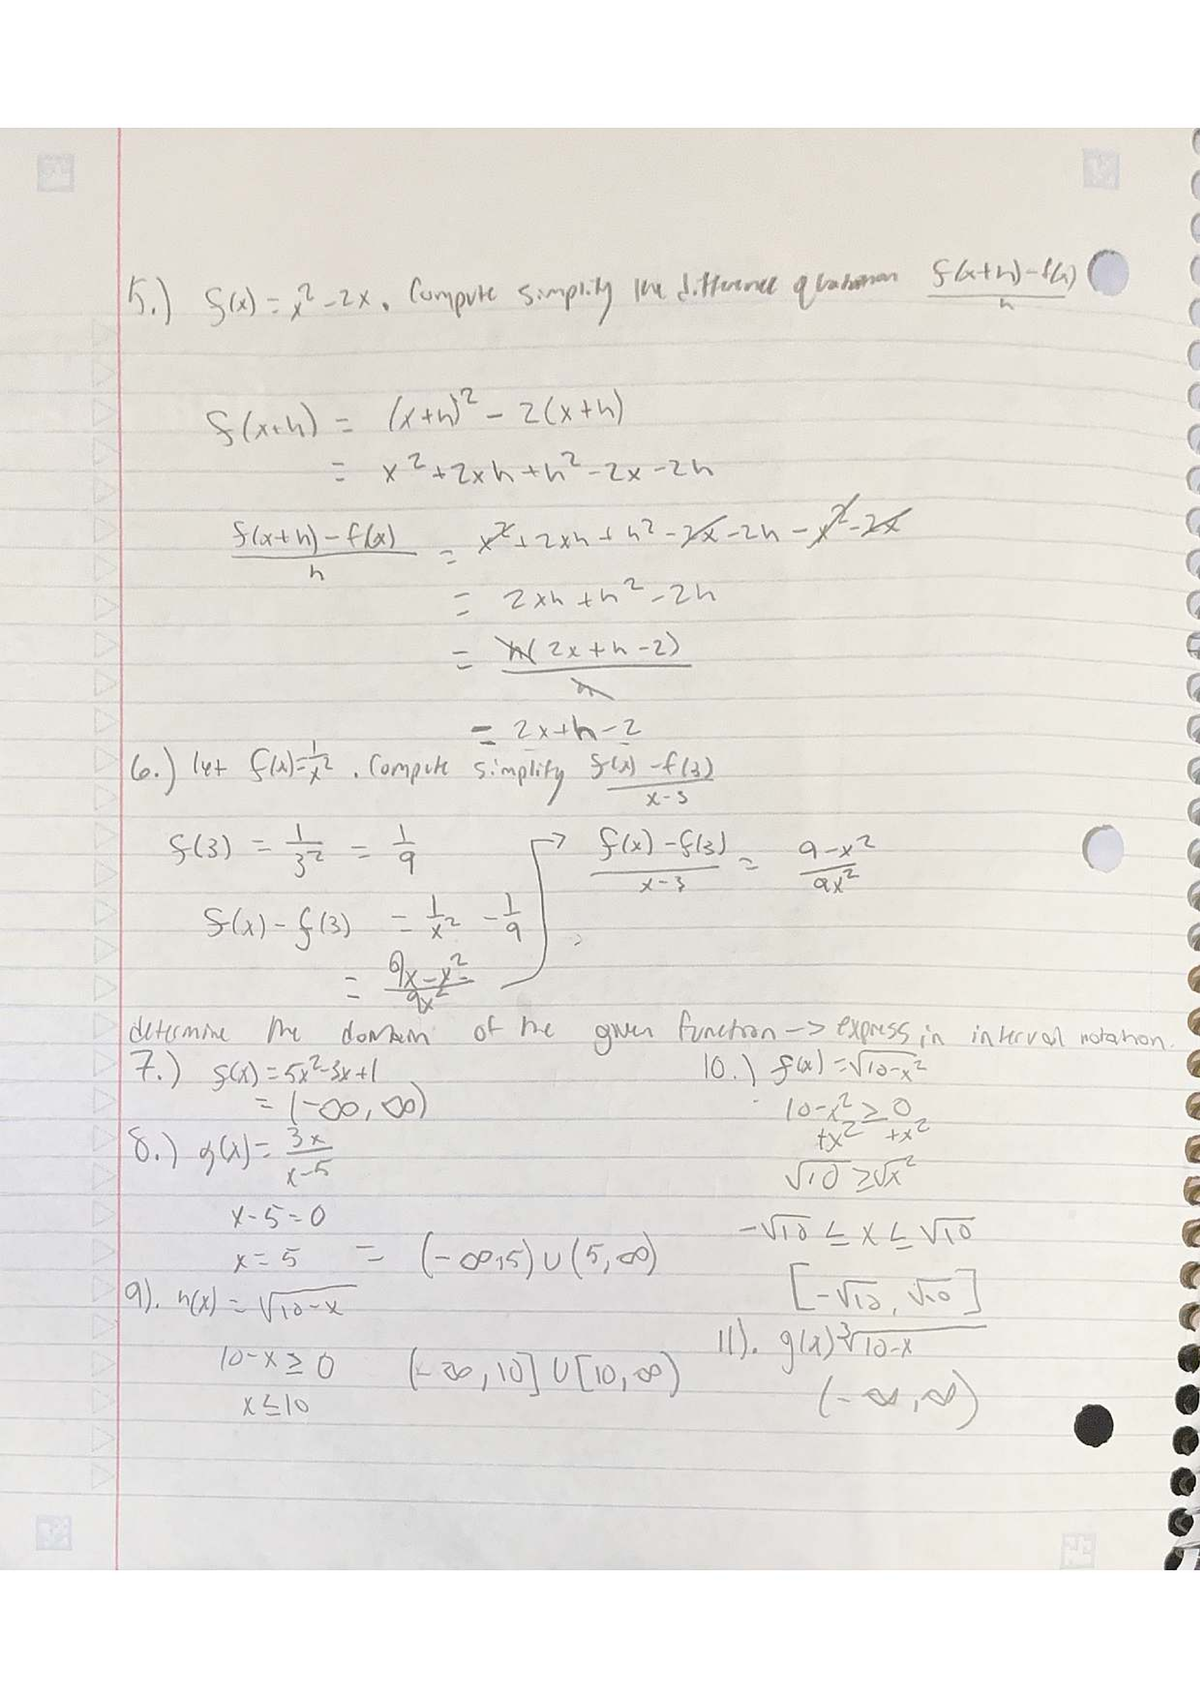 5.) f(x) = x² - 2x. Compute simplify the difference f(x+h) - f(x) / h
f(x+h) = (x+h)² - 2(x+h)
= x² + 2xh + h² - 2x - 2h
f(x+h) - f(x) / h = x² + 2xh + h² - 2x - 2h - x² - 2x
= 2xh + h² - 2h
= h(2x + h - 2) / h
= 2x + h - 2
6.) let f(x) = 1/x². Compute simplify f(x) - f(3) / x - 3
f(3) = 1/3² = 1/9
f(x) - f(3) = 1/x² - 1/9
= 9x - x² / 9x²
→ f(x) - f(3) / x - 3 = 9 - x² / 9x²
determine the domain of the given function -> express in interval notation.
7.) f(x) = 5x² - 3x + 1
= (-∞, ∞)
8.) g(x) = 3x / x - 5
x - 5 = 0
x = 5 = (-∞, 5) ∪ (5, ∞)
9). h(x) = √10 - x
10 - x ≥ 0 (-∞, 10] ∪ [10, ∞)
x ≤ 10
10.) f(x) = √10 - x²
10 - x² ≥ 0
+x² +x²
√10 ≥ √x²
-√10 ≤ x ≤ √10
[-√10, √10]
11). g(x) ³√10 - x
(-∞, ∞)